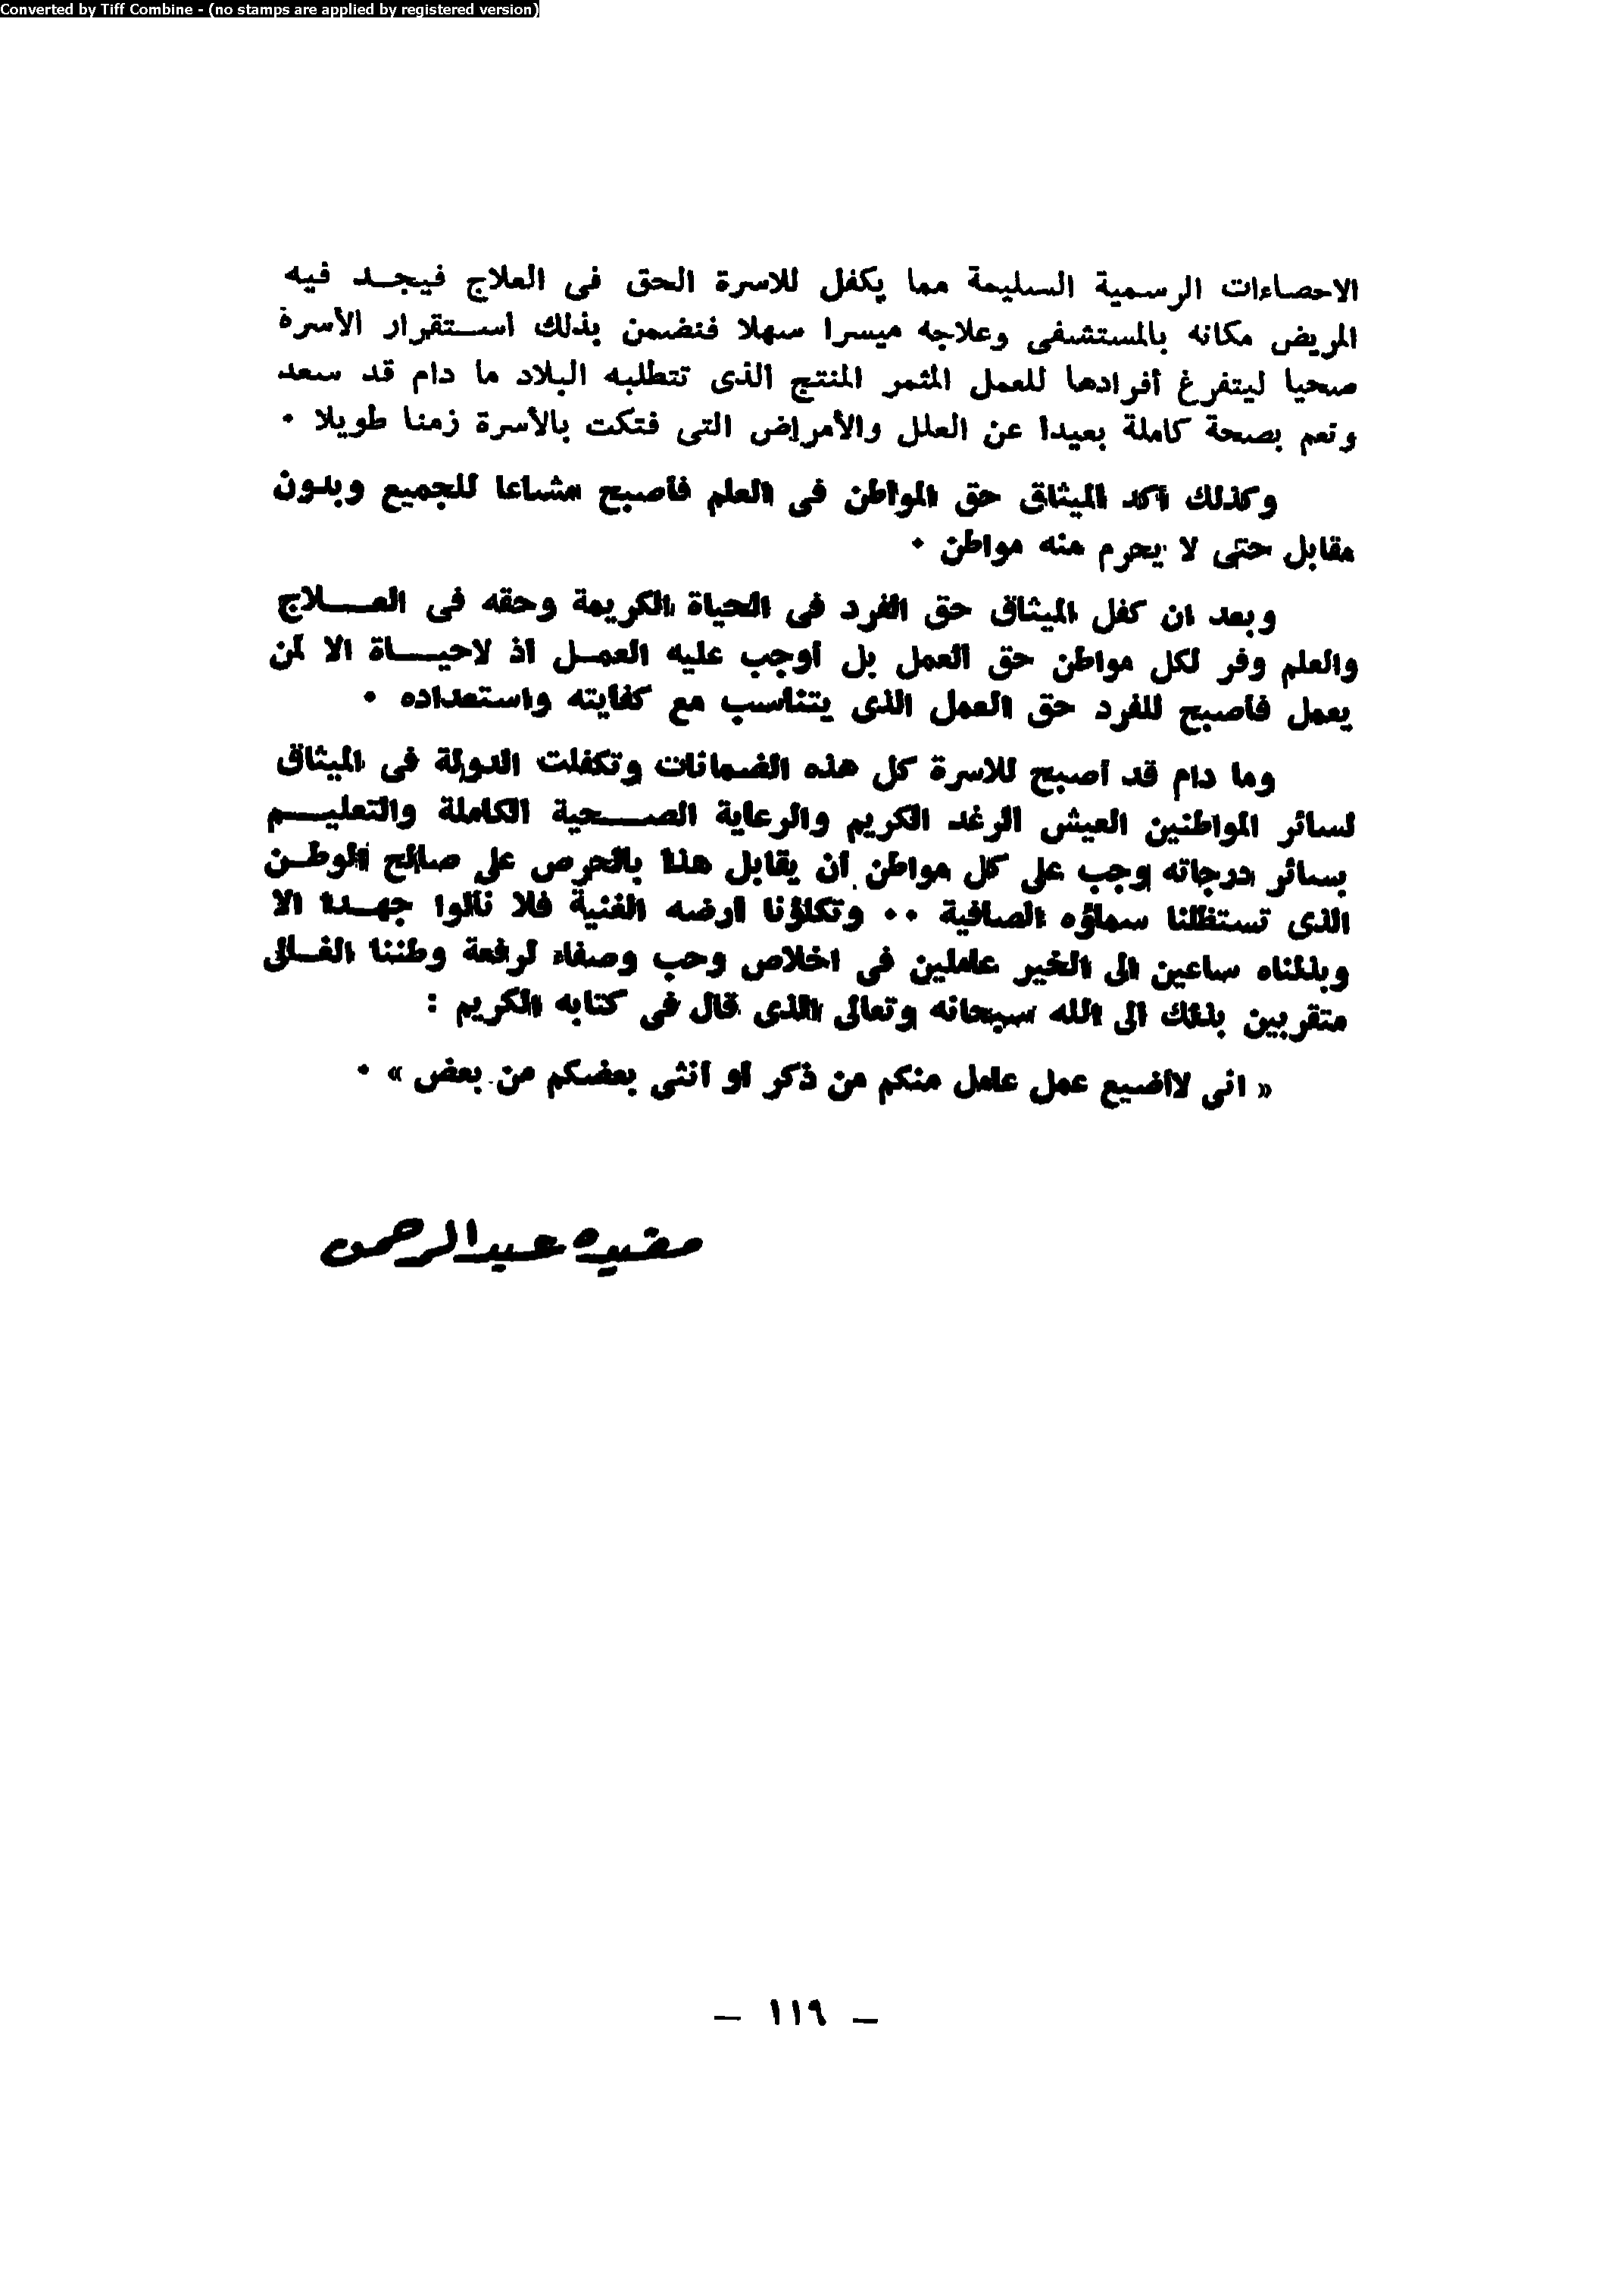 Converted by Tiff Combine - (no stamps are applied by registered version)
الاحصاءات الرسمية السليمة مما يكفل للاسرة الحق فى العلاج فيجد فيه
المريض مكانه بالمستشفى وعلاجه ميسرا سهلا فنضمن بذلك استقرار الأسرة
صحيا ليتفرغ أفرادها للعمل المثمر المنتج الذى تتطلبه البلاد ما دام قد سعد
وتعم بصحة كاملة بعيدا عن العلل والأمراض التى فتكت بالأسرة زمنا طويلا ٠
وكذلك أكد الميثاق حق المواطن فى العلم فأصبح مشاعا للجميع وبدون
مقابل حتى لا يحرم منه مواطن ٠
وبعد ان كفل الميثاق حق الفرد فى الحياة الكريمة وحقه فى العلاج
والعلم وفر لكل مواطن حق العمل بل أوجب عليه العمل اذ لاحياة الا لمن
يعمل فأصبح للفرد حق العمل الذى يتناسب مع كفايته واستعداده ٠
وما دام قد أصبح للاسرة كل هذه الضمانات وتكفلت الدولة فى الميثاق
لسائر المواطنين العيش الرغد الكريم والرعاية الصحية الكاملة والتعليم
بسائر درجاته وجب على كل مواطن أن يقابل هذا بالحرص على صالح الوطن
الذى تستظلنا سماؤه الصافية ٠٠ وتكلؤنا أرضه الغنية فلا نألوا جهدا الا
وبذلناه ساعين الى الخير عاملين فى اخلاص وحب وصفاء لرفعة وطننا الغالى
متقربين بذلك الى الله سبحانه وتعالى الذى قال فى كتابه الكريم :
« انى لاأضيع عمل عامل منكم من ذكر أو أنثى بعضكم من بعض » ٠
مفيده عبدالرحمن
— ١١٩ —